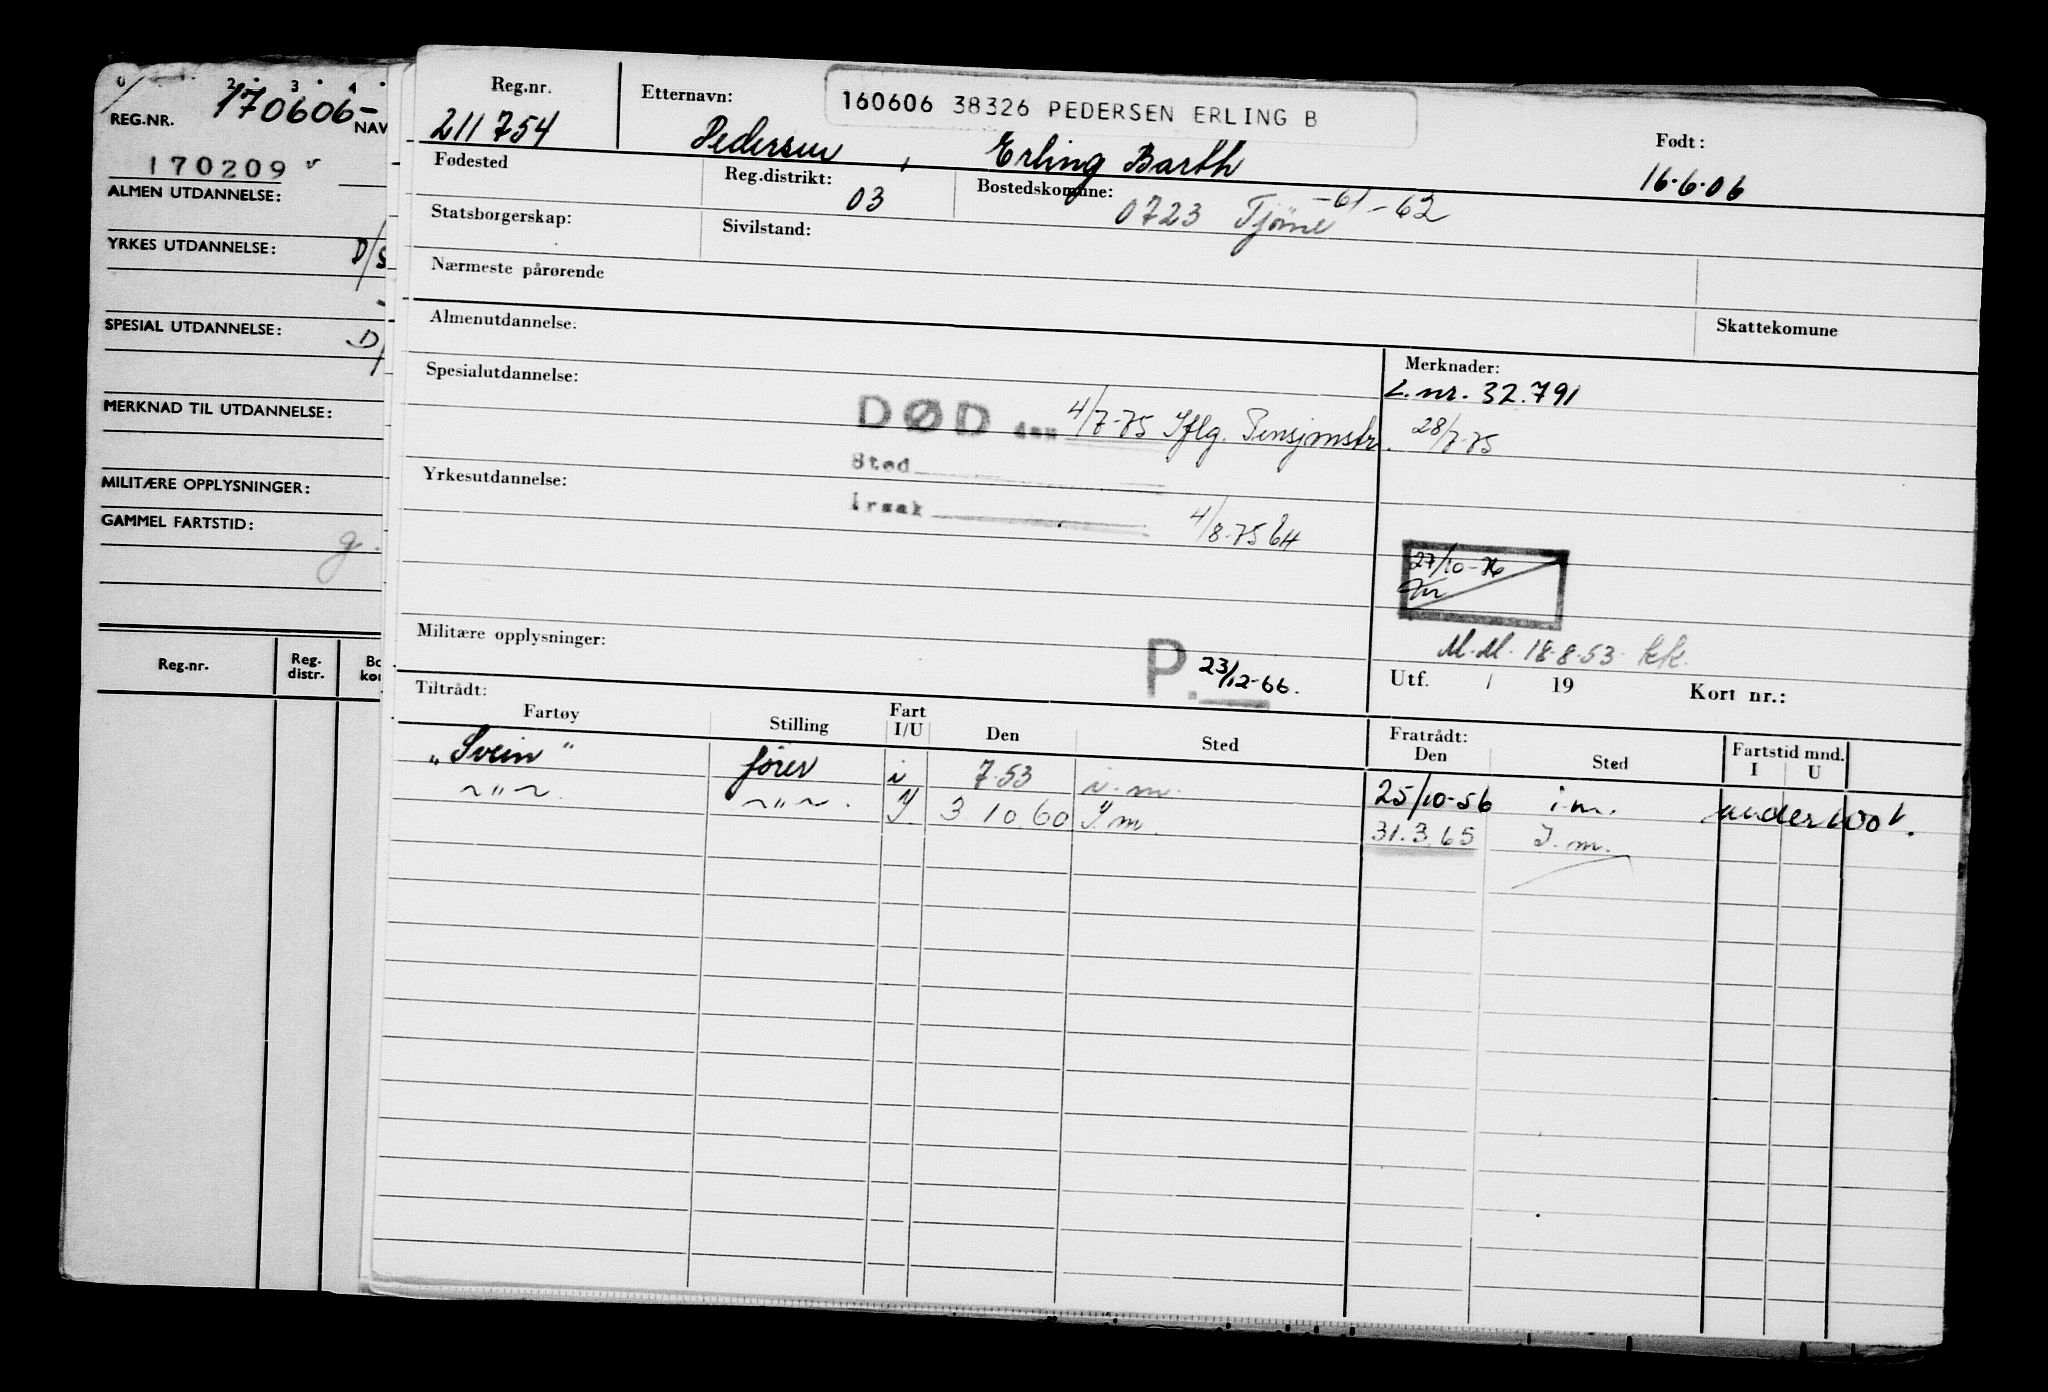 2 3 4
REG.NR. 170606- NAV
170209
ALMEN UTDANNELSE:
YRKES UTDANNELSE: D/S
SPESIAL UTDANNELSE: D/
MERKNAD TIL UTDANNELSE:
MILITÆRE OPPLYSNINGER:
GAMMEL FARTSTID: g.
Reg.nr. Reg. distr. Bo kor
Reg.nr. Etternavn: 160606 38326 PEDERSEN ERLING B Født:
211754 Pedersen, Erling Barth 16.6.06
Fødested Reg.distrikt: 03 Bostedskommune: 0723 Tjøme -61-62
Statsborgerskap: Sivilstand:
Nærmeste pårørende
Almenutdannelse: Skattekomune
Spesialutdannelse: Merknader:
L.nr. 32.791
DØD den 4/7-75 Iflg. Pensjonstr. 28/7-75
Sted
Yrkesutdannelse:
Årsak
4/8-75
27/10-76
Militære opplysninger: M.M. 18-8-53
P. 23/12-66.
Utf. / 19 Kort nr.:
Tiltrådt: Fratrådt: Fartstid mnd.
Fartøy Stilling Fart I/U Den Sted Den Sted I U
"Svein" fører i 7.53 i.m. 25/10-56 i.m. under 100 t.
~"~ ~"~. I. 3.10.60 I.m. 31.3.65 I.m.